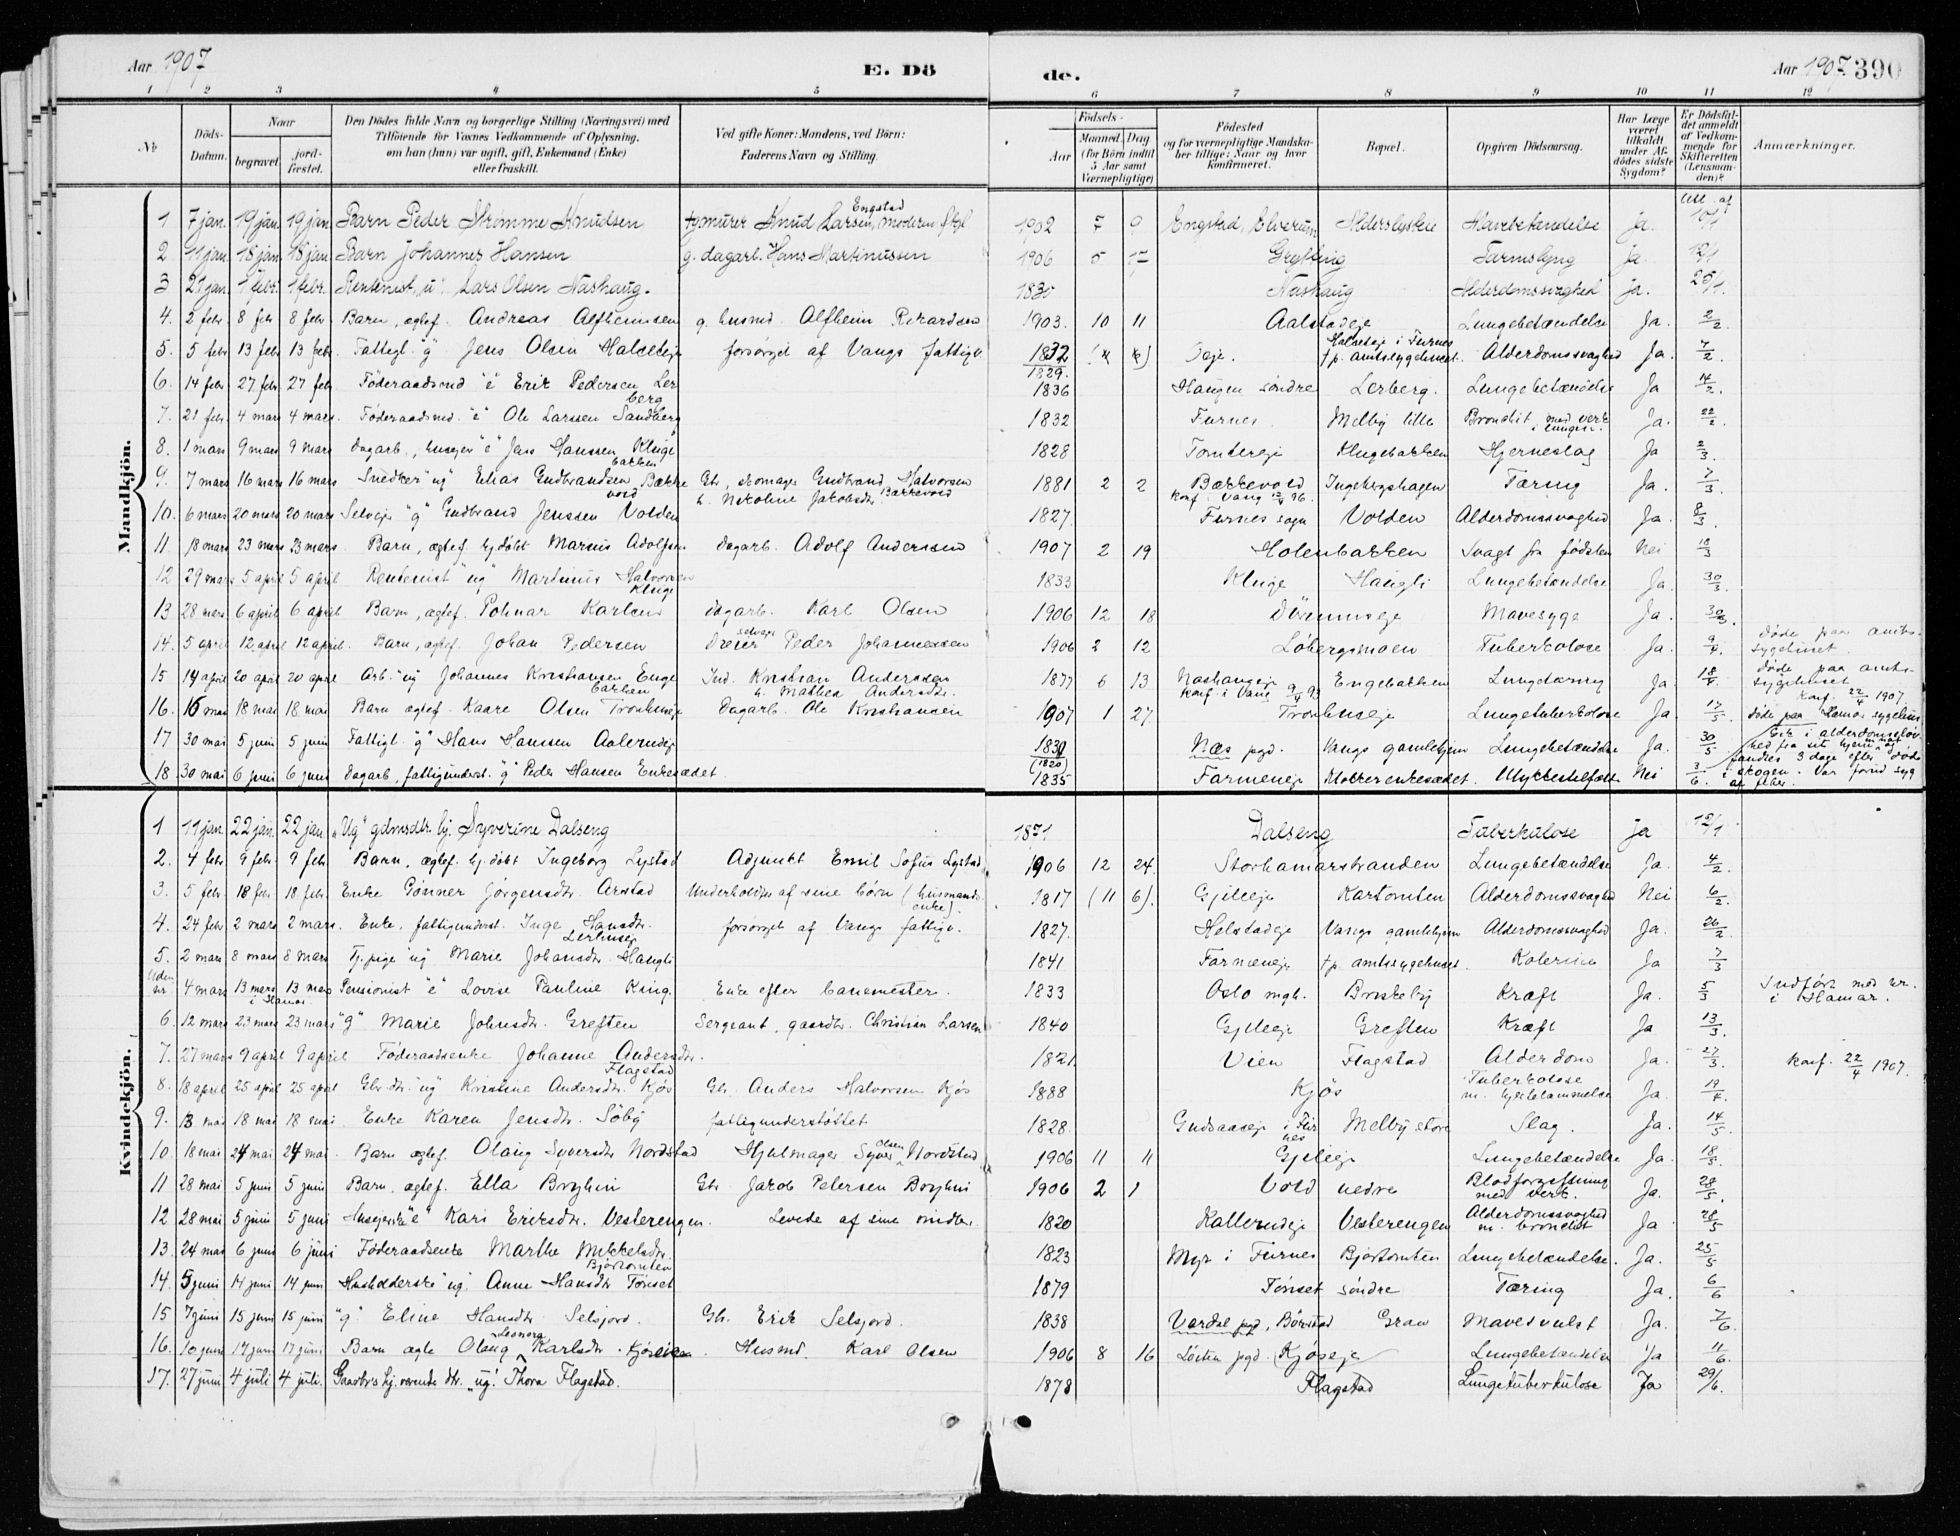 Aar 1907 E. Dö
de. Aar 1907 390
1 2 3 4 5
6 7 8 9 10 11 12
№ Döds-Datum. Naar begravet. jordfæstet. Den Dödes fulde Navn og borgerlige Stilling (Næringsvei) med Tilföiende for Voxnes Vedkommende af Oplysning, om han (hun) var ugift, gift, Enkemand (Enke) eller fraskilt. Ved gifte Koner: Mandens, ved Börn: Faderens Navn og Stilling.
Födsels- Aar Maaned. Dag (for Börn indtil 5 Aar samt Værnepligtige) Födested og for værnepligtige Mandskaber tillige: Naar og hvor konfirmeret. Bopæl. Opgiven Dödsaarsag. Har Læge været tilkaldt under Afdödes sidste Sygdom? Er Dödsfaldet anmeldt af Vedkommende for Skifteretten (Lensmanden)? Anmærkninger.
Mandkjön.
1 7 jan. 19 jan 19 jan Barn Peder Strømme Knudsen Knud Larsen Engstad 1902 7 9 Engstad, Elverum Havebetændelse ja. 10/1
2 11 jan. 18 jan 18 jan Barn Johannes Hansen g. dagarb. Hans Martinussen 1906 5 Grytting Tarmslyng ja 12/1
3 21 jan 1 febr. 1 febr. Rentenist, "u" Lars Olsen Nashaug. 1830 Nashaug Alderdomssvaghed ja. 25/1
4. 2 febr 8 febr 8 febr. Barn, ægtef. Andreas Alfheimsen g. husmd. Alfheim Rikardsen 1903. 10 11 Aalstadeje Lungebetændelse Ja. 2/2
5. 5 febr 13 febr 13 febr. Fattigl. "g" Jens Olsen forsørget af Vangs fattigv. 1832 1829. i Furnes p. amtssygehuset. Alderdomssvaghed Ja. 7/2
6. 14 febr. 27 febr. 27 febr. Føderaadsmd "e" Erik Pedersen Lerberg 1836 Haugen søndre Lerberg. Lungebetændelse Ja 14/2
7. 21 febr. 4 mars 4 mars. Føderaadsmd. "e" Ole Larsen Sandberg 1832 Furnes. Melby lille Bronchit med verk i lungen. Ja. 22/2
8. 1 mars 9 mars 9 mars Dagarb., huseier "e" Jens Hanssen Klugebakken 1828 Tomtereje Klugebakken Hjerneslag Ja 2/3
9. 7 mars 16 mars 16 mars Snedker "ug" Elias Gudbrandsen Bækkevold Gbr, skomager Gudbrand Halvorsen h. Nikoline Jakobsdtr Bækkevold 1881 2 2 Bækkevold konf. Vang 96. Ingebergshagen Tæring Ja. 7/3
10. 6 mars 20 mars 20 mars Selveier "g" Gudbrand Jenssen Volden 1827. Furnes sogn Volden Alderdomssvaghed Ja. 8/3
11. 18 mars 23 mars 23 mars. Barn, ægtef. hj.døbt Marius Adolfsen Dagarb. Adolf Anderssen 1907 2 19 Holenbakken Svagt fra fødslen Nei 18/3
12 29 mars 5 april 5 april Rentenist "ug" Martinus Halvorsen Kluge 1833 Kluge Haugli Lungebetændelse Ja. 30/3
13 28 mars 6 april 6 april Barn, ægtef. Karlsen Dagarb. Karl Olsen 1906 12 18 Mavesyge Ja. 30/3.
14. 5 april 12 april 12 april. Barn, ægtef. Johan Pedersen Dreier selveier Peder Johannessen 1906 2 12 Løbergsmoen Tuberkolose Ja. 9/4. Døde paa amtssygehuset.
15 14 april 20 april 20 april Arb. "ug" Johannes Kristiansen Engebakken Ind. Kristian Anderssen h. Mathea Andersdtr. 1877 6 13 Nashaugeje konf i Vang 9/4 93 Engebakken Lungetæring Ja. 18/4. Døde paa amtssygehuset
16. 16 mai 18 mai 18 mai Barn ægtef. Kaare Olsen Dagarb. Ole Kristiansen 1907 1 27 Lungetuberkolose Ja. 17/5 konf. 22/4 1907. Døde paa Hamar sygehus
17 30 mai 5 juni 5 juni Fattigl. "g" Hans Hanssen 1830 (1820) Næs pgd. Vangs gamlehjem Lungebetændelse Ja. 30/5
18. 30 mai 6 juni 6 juni Dagarb, fattigunderst. "g" Peder Hansen Enkesædet. 1835 Farmeneje Klokkerenkesædet. Ulykkestilfælde Nei 3/6. Gik i alderdomssløvhed fra sit hjem og fandtes 3 dage efter død i skogen. Var forud syg af feber.
Kvindekjön.
1 11 jan. 22 jan. 22 jan. "Ug" gdmsdtr. hj. Syverine Dalseng 1871 Dalseng Tuberkulose ja 12/1
2. 4 febr 9 febr. 9 febr Barn, ægtef. hj.døbt Ingeborg Lystad Adjunkt Emil Sofus Lystad, 1906 12 24. Storhamarstranden Lungebetændelse Ja. 4/2.
3. 5 febr 18 febr 18 febr. Enke Gønner Jørgensdtr. Arstad Underholdtes af sine børn (husmands enke). 1817 (11 6). Gjileeje Karstomten Alderdomssvaghed Nei 6/2.
4. 24 febr 2 mars 2 mars. Enke, fattigunderst. Inge Hansdtr. forsørget af Vangs fattigv. 1827. Helstadeje Vangs gamlehjem Alderdomssvaghed Ja. 26/2
5. 2 mars 8 mars 8 mars Tj.pige "ug" Marie Johansdtr. Haugli 1841 Farmeneje p. amtssygehuset. Kolerine Ja 7/3
Uden nr 4 mars 13 mars i Hamar 13 mars Pensionist "e" Lovise Pauline Ring. Enke efter banemester. 1833 Oslo mgh. Briskeby Kræft Ja. 5/3 Indført med nr. i Hamar.
6. 12 mars 23 mars 23 mars "g" Marie Johnsdtr. Greften Sergeant, gaardbr. Christian Larsen 1840 Gjileeje Greften Kræft Ja 13/3
7. 27 mars 9 april 9 april Føderaadsenke Johanne Andersdtr. Flagstad 1821. Vien Flagstad Alderdom Ja. 27/3.
8. 18 april 25 april 25 april Gbr.dtr. "ug" Kristine Andersdtr. Kjøs Gbr. Anders Halvorsen Kjøs 1888 Kjøs Tuberkolose m. hjertelammelse Ja. 19/4. konf. 22/4 1907.
9. 13 mai 18 mai 18 mai. Enke Karen Jensdtr. Søby fattigunderstøttet 1828. Gudsaaseje i Furnes Melby store Slag. Ja. 14/5.
10. 18 mai 24 mai 24 mai. Barn ægtef. Olaug Syversdtr Nordstad Hjulmager Syver Olsen Nordstad 1906 11 11 Gjileeje Lungebetændelse Ja. 18/5.
11 28 mai 5 juni 5 juni Barn, ægtef. Ella Bryhni Gbr. Jakob Petersen Bryhni 1906 2 1 Vold nedre Blodforgiftning med verk. Ja. 28/5.
12 28 mai 5 juni 5 juni Huseierske "e" Kari Eriksdtr. Vesterengen. Levede af sine midler. 1820 Kallerudeje Vesterengen Alderdomssvaghed m. bronchit Ja 28/5
13. 24 mai 6 juni 6 juni Føderaadsenke Marthe Mikkelsdtr. Bjørtomten 1823 Myr i Furnes Bjørtomten Lungebetændelse. Ja. 25/5
14. 5 juni 14 juni 14 juni Husholderske "ug" Anne Hansdtr Tønset 1879 Tønset søndre Tæring Ja. 6/6
15 7 juni 15 juni 15 juni "g" Eline Hansdtr Selsjord. Gbr. Erik Selsjord. 1838 Vardal pgd, Børstad Gran Mavesvulst Ja. 7/6.
16. 10 juni 17 juni 17 juni Barn ægte Olaug Leonora Karlsdtr. Husmd. Karl Olsen 1906 8 16 Løiten pgd. Kjøseje Lungebetændelse Ja 11/6.
17. 27 juni 4 juli 4 juli. Gaardbr's hj.værende dtr. "ug" Thora Flagstad. 1878 Flagstad Lungetuberkulose Ja 29/6.